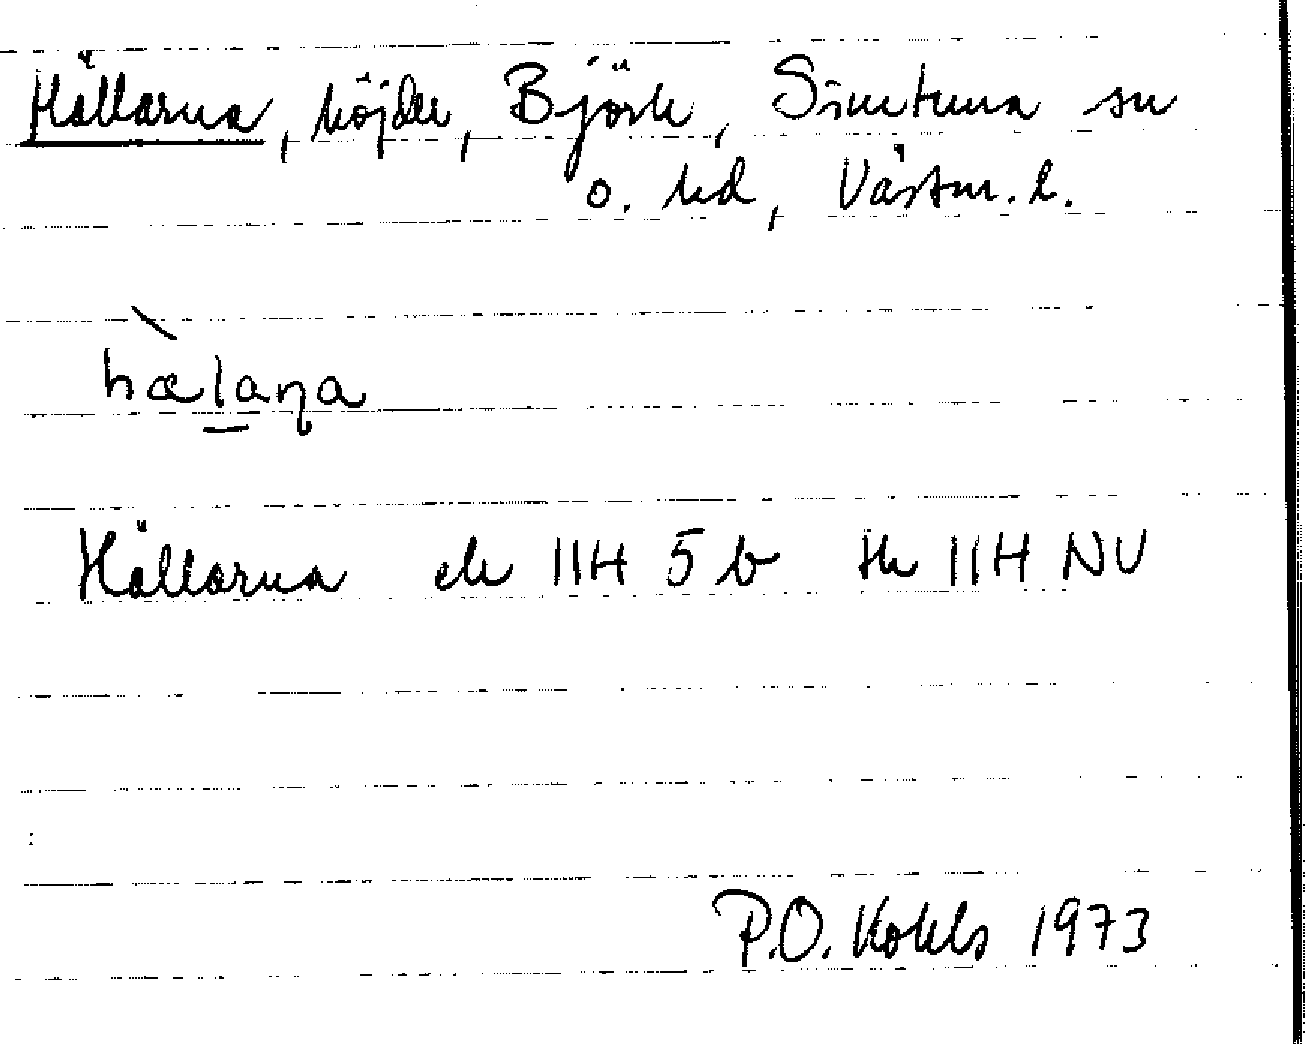 Hällarna, höjder, Björk, Simtuna sn
o. hd, Västm. l.
hælaɳa
Hällarna ek 11H 5 b tk 11H NV
P.O. Kohls 1973